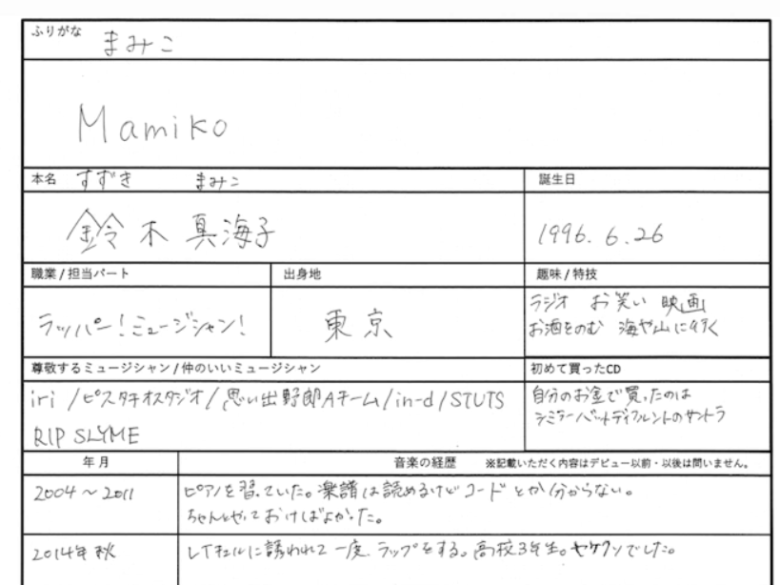 ふりがな まみこ
Mamiko
本名 すずき まみこ
誕生日
鈴木 真海子
1996. 6. 26
職業/担当パート
出身地
趣味/特技
ラッパー!ミュージシャン!
東京
ラジオ お笑い 映画
お酒をのむ 海や山に行く
尊敬するミュージシャン/仲のいいミュージシャン
初めて買ったCD
iri /ピスタチオスタジオ/思い出野郎Aチーム/in-d/STUTS
RIP SLYME
自分のお金で買ったのは
シミラーバットディファレントのサントラ
年月
音楽の経歴 ※記載いただく内容はデビュー以前・以後は問いません。
2004〜2011
ピアノを習っていた。楽譜は読めるけどコードとか分からない。
ちゃんとやっておけばよかった。
2014年 秋
レイチェルに誘われて一度ラップをする。高校3年生。ヤケクソでした。